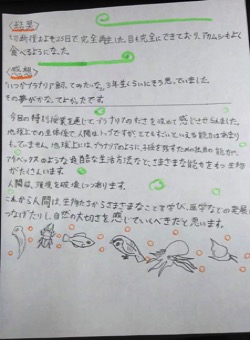 〈結果〉
切断後およそ25日で完全再生した。目も完全にできており、アカムシもよく
食べるようになった。
〈感想〉
「いつかプラナリア飼ってみたいな。」3年生くらいにそう思っていました。
その夢がかなってよかったです。
今回の特別授業を通して、プラナリアのすごさを改めて感じさせられました。
地球上での生体体で人間はトップですが、とてもすごいといえる能力はあまり
もっていません。地球上には、プラナリアのように、子孫を残すための独自の能力や、
アカベックスのような攻撃的な生活方法など、さまざまな能力をもつ生物
がたくさんいます。
人間は、環境を破壊しつつあります。
これから人間は、生物たちからさまざまなことを学び、医学などの発展に
つなげたりし自然の大切さを感じていくべきだと思います。